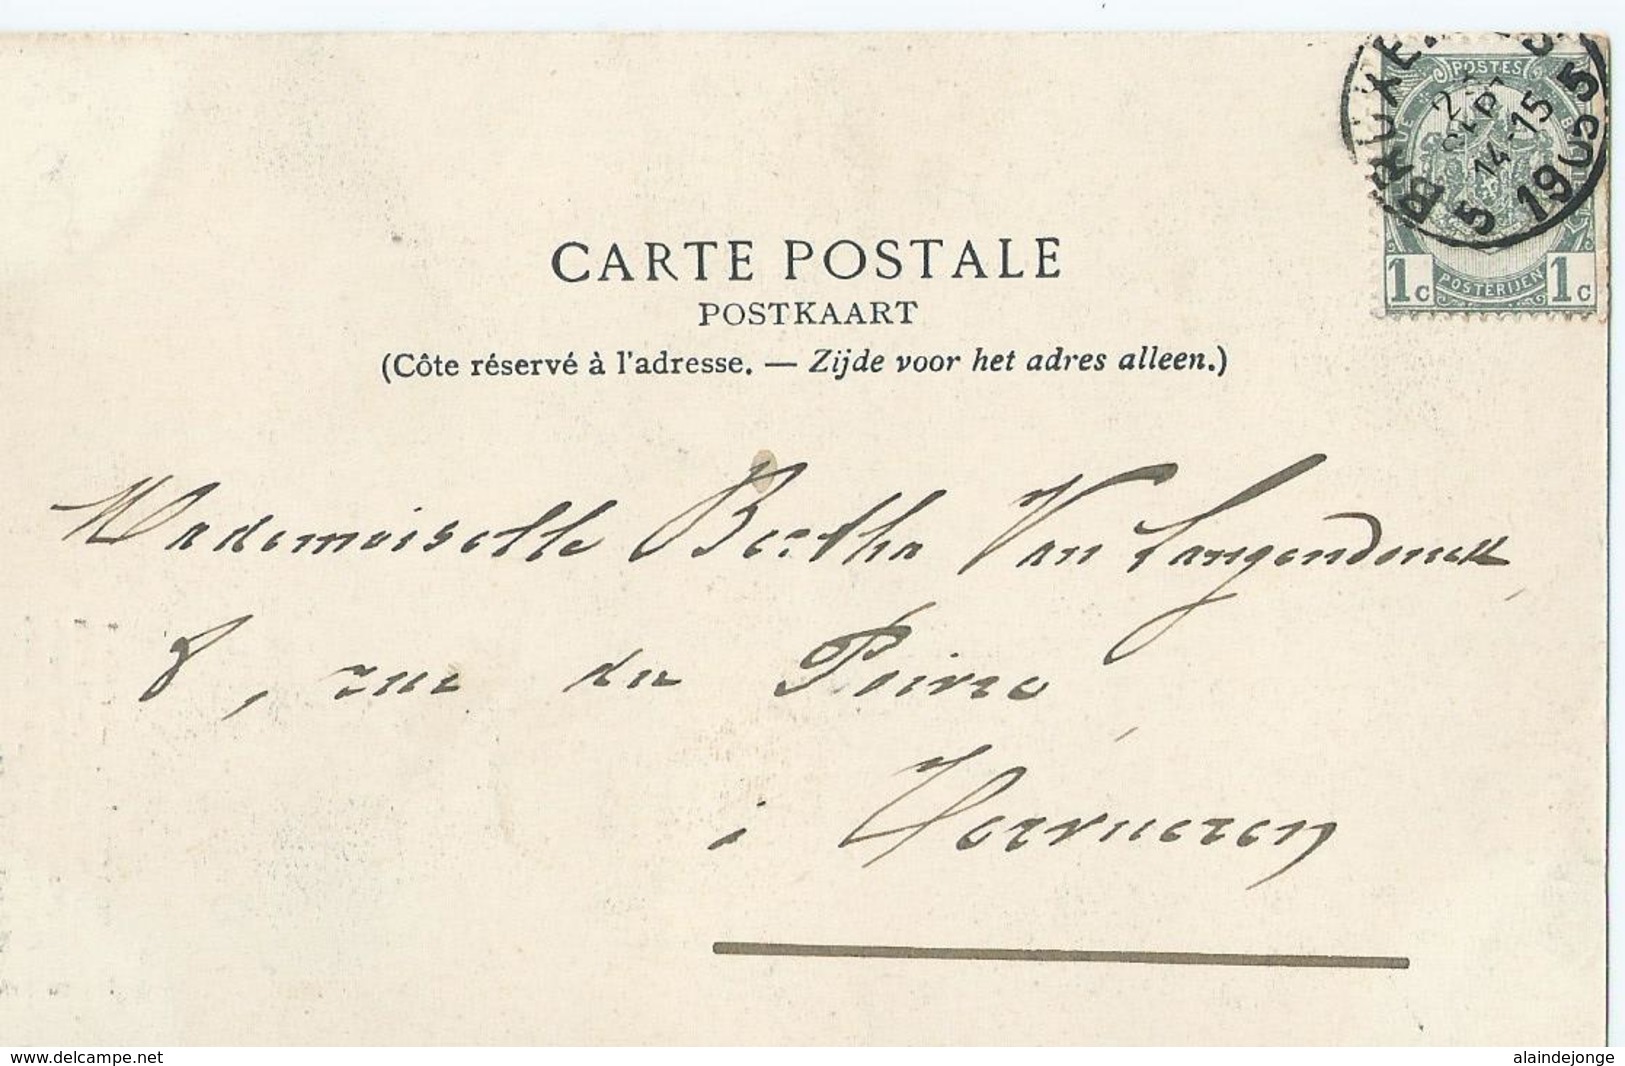 BRUXE
2
SEPT
14-15
1905
5
POSTES
POSTERIJEN
1c 1c
CARTE POSTALE
POSTKAART
(Côte réservé à l'adresse. — Zijde voor het adres alleen.)
Mademoiselle Bertha Van Langendonck,
8, rue du Poivre,
à Tervueren
www.delcampe.net
alaindejonge